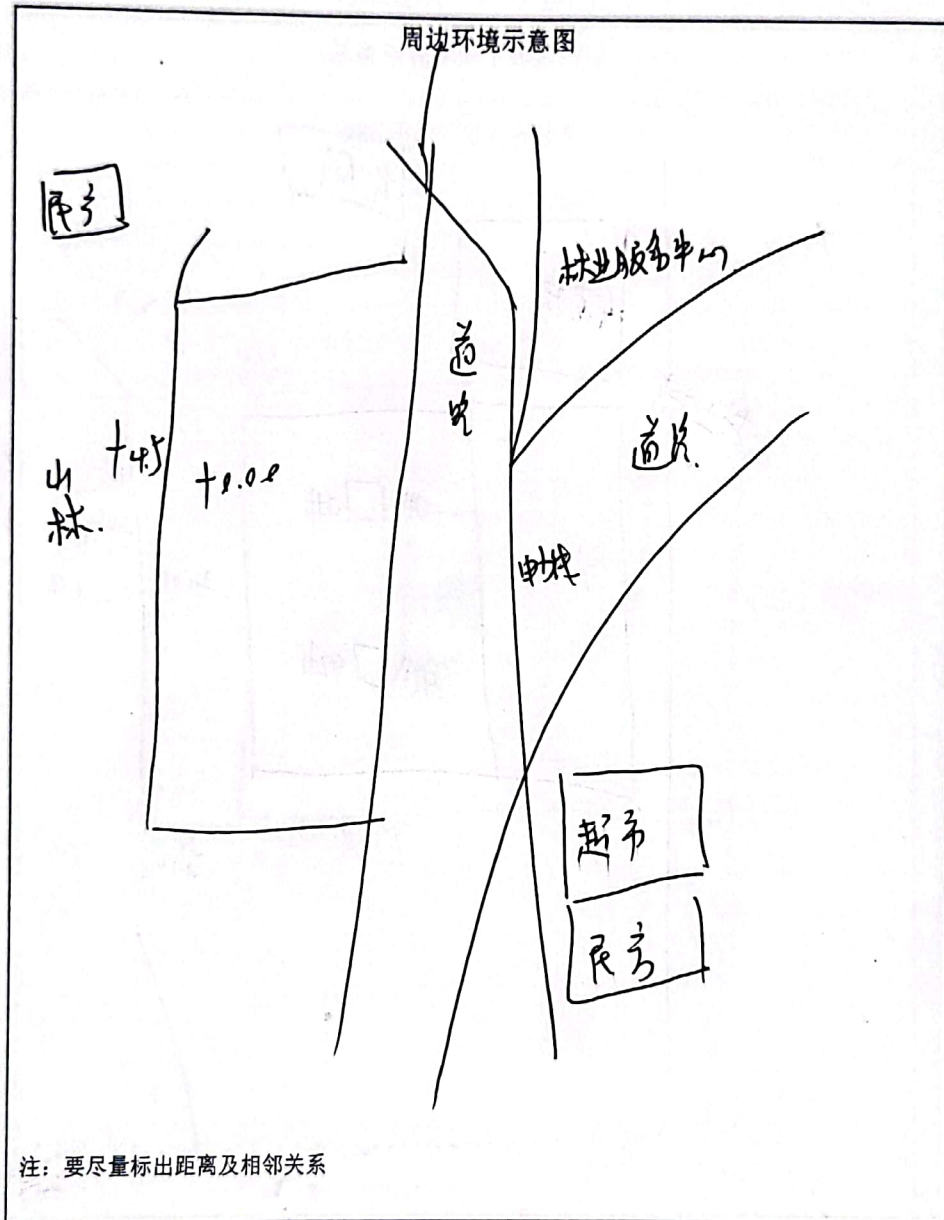 周边环境示意图
民房
林业服务中心
道路
道路
+4.5
+0.00
山林.
电线
超市
民房
注：要尽量标出距离及相邻关系